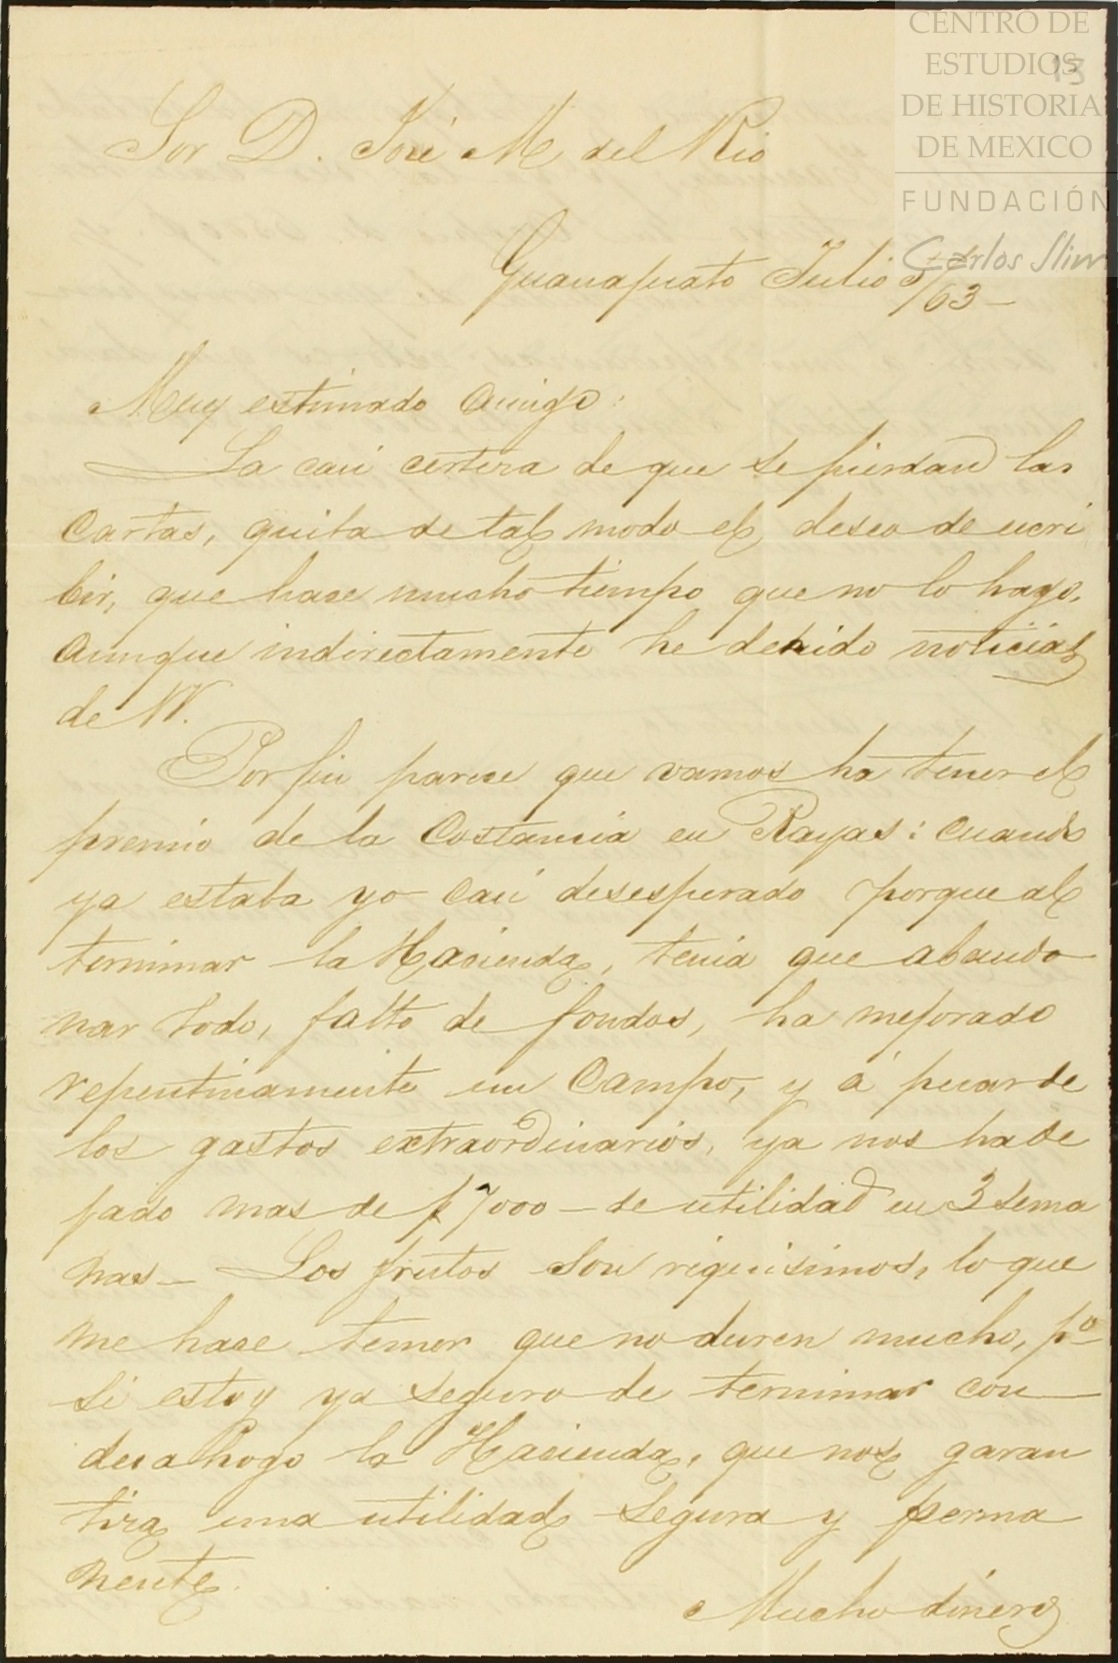 CENTRO DE
ESTUDIOS
DE HISTORIA
DE MEXICO
FUNDACIÓN
Carlos Slim
13
Sor D. José M. del Rio
Guanajuato Julio /63–
Muy estimado amigo:
La casi certeza de que se pierdan las
cartas, quita de tal modo el deseo de escri
bir, que hace mucho tiempo que no lo hago,
aunque indirectamente he denido noticias
de VV.
Por fin parece que vamos ha tener el
premio de la Costancia en Rayas: cuando
ya estaba yo casi desesperado porque al
terminar la Hacienda, tenia que abando
nar todo, falto de fondos, ha mejorado
repentinamente un Campo, y á pesar de
los gastos extraordinarios, ya nos ha de
jado mas de $7000– de utilidad en 3 sema
nas– Los frutos son riquisimos, lo que
me hace temer que no duren mucho, po
si estoy ya seguro de terminar con
desahogo la Hacienda, que nos garan
tiza una utilidad segura y perma
nente.
Mucho dinero